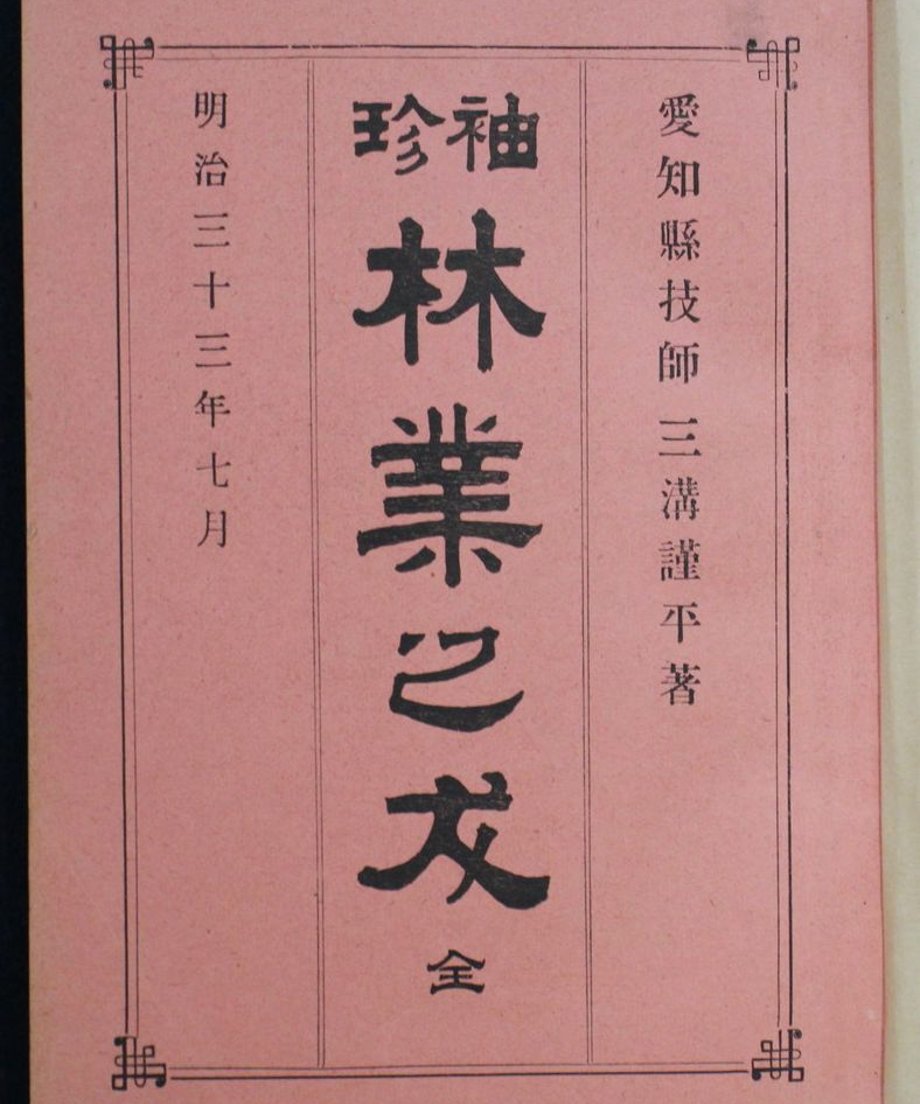 愛知縣技師 三溝謹平著
袖珍
林業之友 全
明治三十三年七月